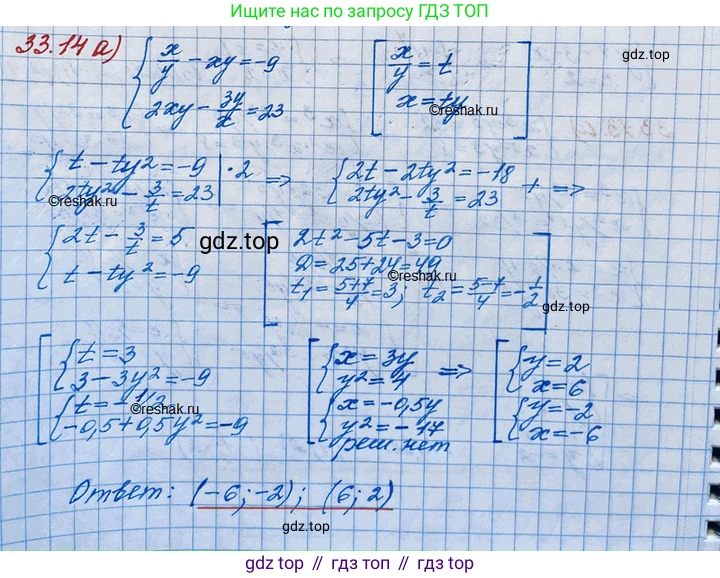 Ищите нас по запросу ГДЗ ТОП
33.14 а)
{ x/y - xy = -9
2xy - 3y/x = 23
[ x/y = t
x = ty ]
gdz.top
©reshak.ru
{ t - ty² = -9 | ·2
2ty² - 3/t = 23
=>
{ 2t - 2ty² = -18
2ty² - 3/t = 23
+ =>
©reshak.ru
{ 2t - 3/t = 5
t - ty² = -9
gdz.top
[ 2t² - 5t - 3 = 0
D = 25 + 24 = 49
t₁ = (5+7)/4 = 3; t₂ = (5-7)/4 = -1/2 ]
©reshak.ru
[ { t = 3
3 - 3y² = -9
{ t = -1/2
-0,5 + 0,5y² = -9
©reshak.ru
[ { x = 3y
y² = 4
{ x = -0,5y
y² = -17
реш. нет
=>
[ { y = 2
x = 6
{ y = -2
x = -6
Ответ: (-6; -2); (6; 2)
gdz.top
gdz.top // гдз топ // gdz.top